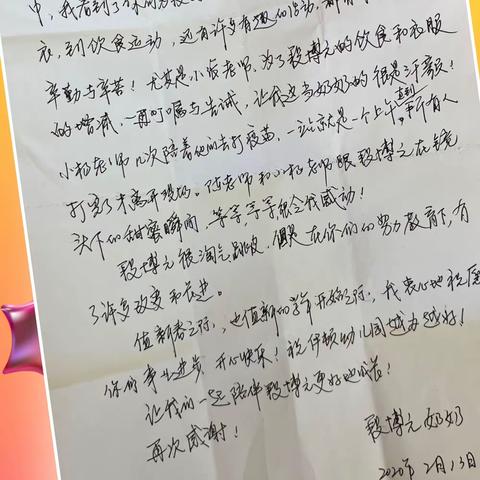 中，我看到了
衣，到饮食运动，还有许多有趣的活动，都有
辛勤与辛苦！尤其是小张老师、为了段博元的饮食和衣服
的增减，一再叮嘱与告诫，让我这当奶奶的很是汗颜！
小杨老师几次陪着他们去打疫苗，一站就是一个上午，直到所有人
打完了才离开现场。陈老师和小杨老师跟段博元在镜
头下的甜蜜瞬间，等等等等都令我感动！
段博元很淘气、跳皮，但是在你们的努力教育下，有
了许多改变和长进。
值新春之际，也值新的学年开始之际，我衷心地祝愿
你们事业进步、开心快乐！祝伊顿幼儿园越办越好！
让我们一起陪伴段博元更好地成长！
再次感谢！
段博元奶奶
2020年2月13日